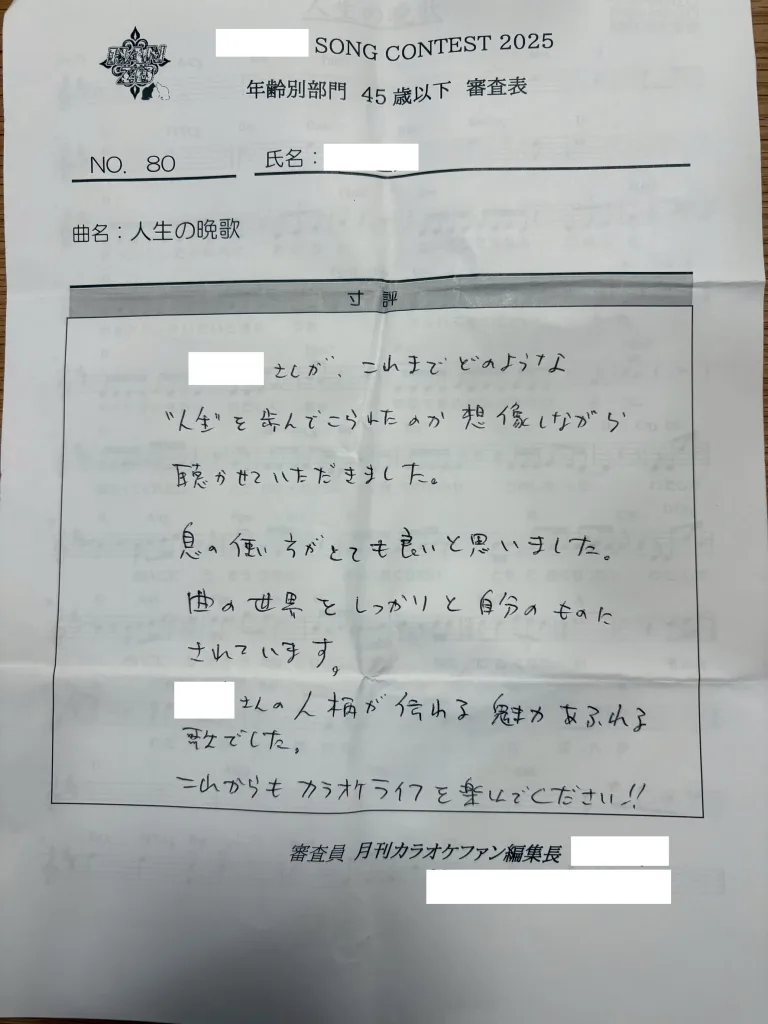 SONG CONTEST 2025
年齢別部門 45歳以下 審査表
NO. 80 氏名：
曲名：人生の晩歌
寸評
さんが、これまでどのような
"人生"を歩んでこられたのか想像しながら
聴かせていただきました。
息の使い方がとても良いと思いました。
曲の世界をしっかりと自分のものに
されています。
さんの人柄が伝わる魅力あふれる
歌でした。
これからもカラオケライフを楽しんでください!!
審査員 月刊カラオケファン編集長